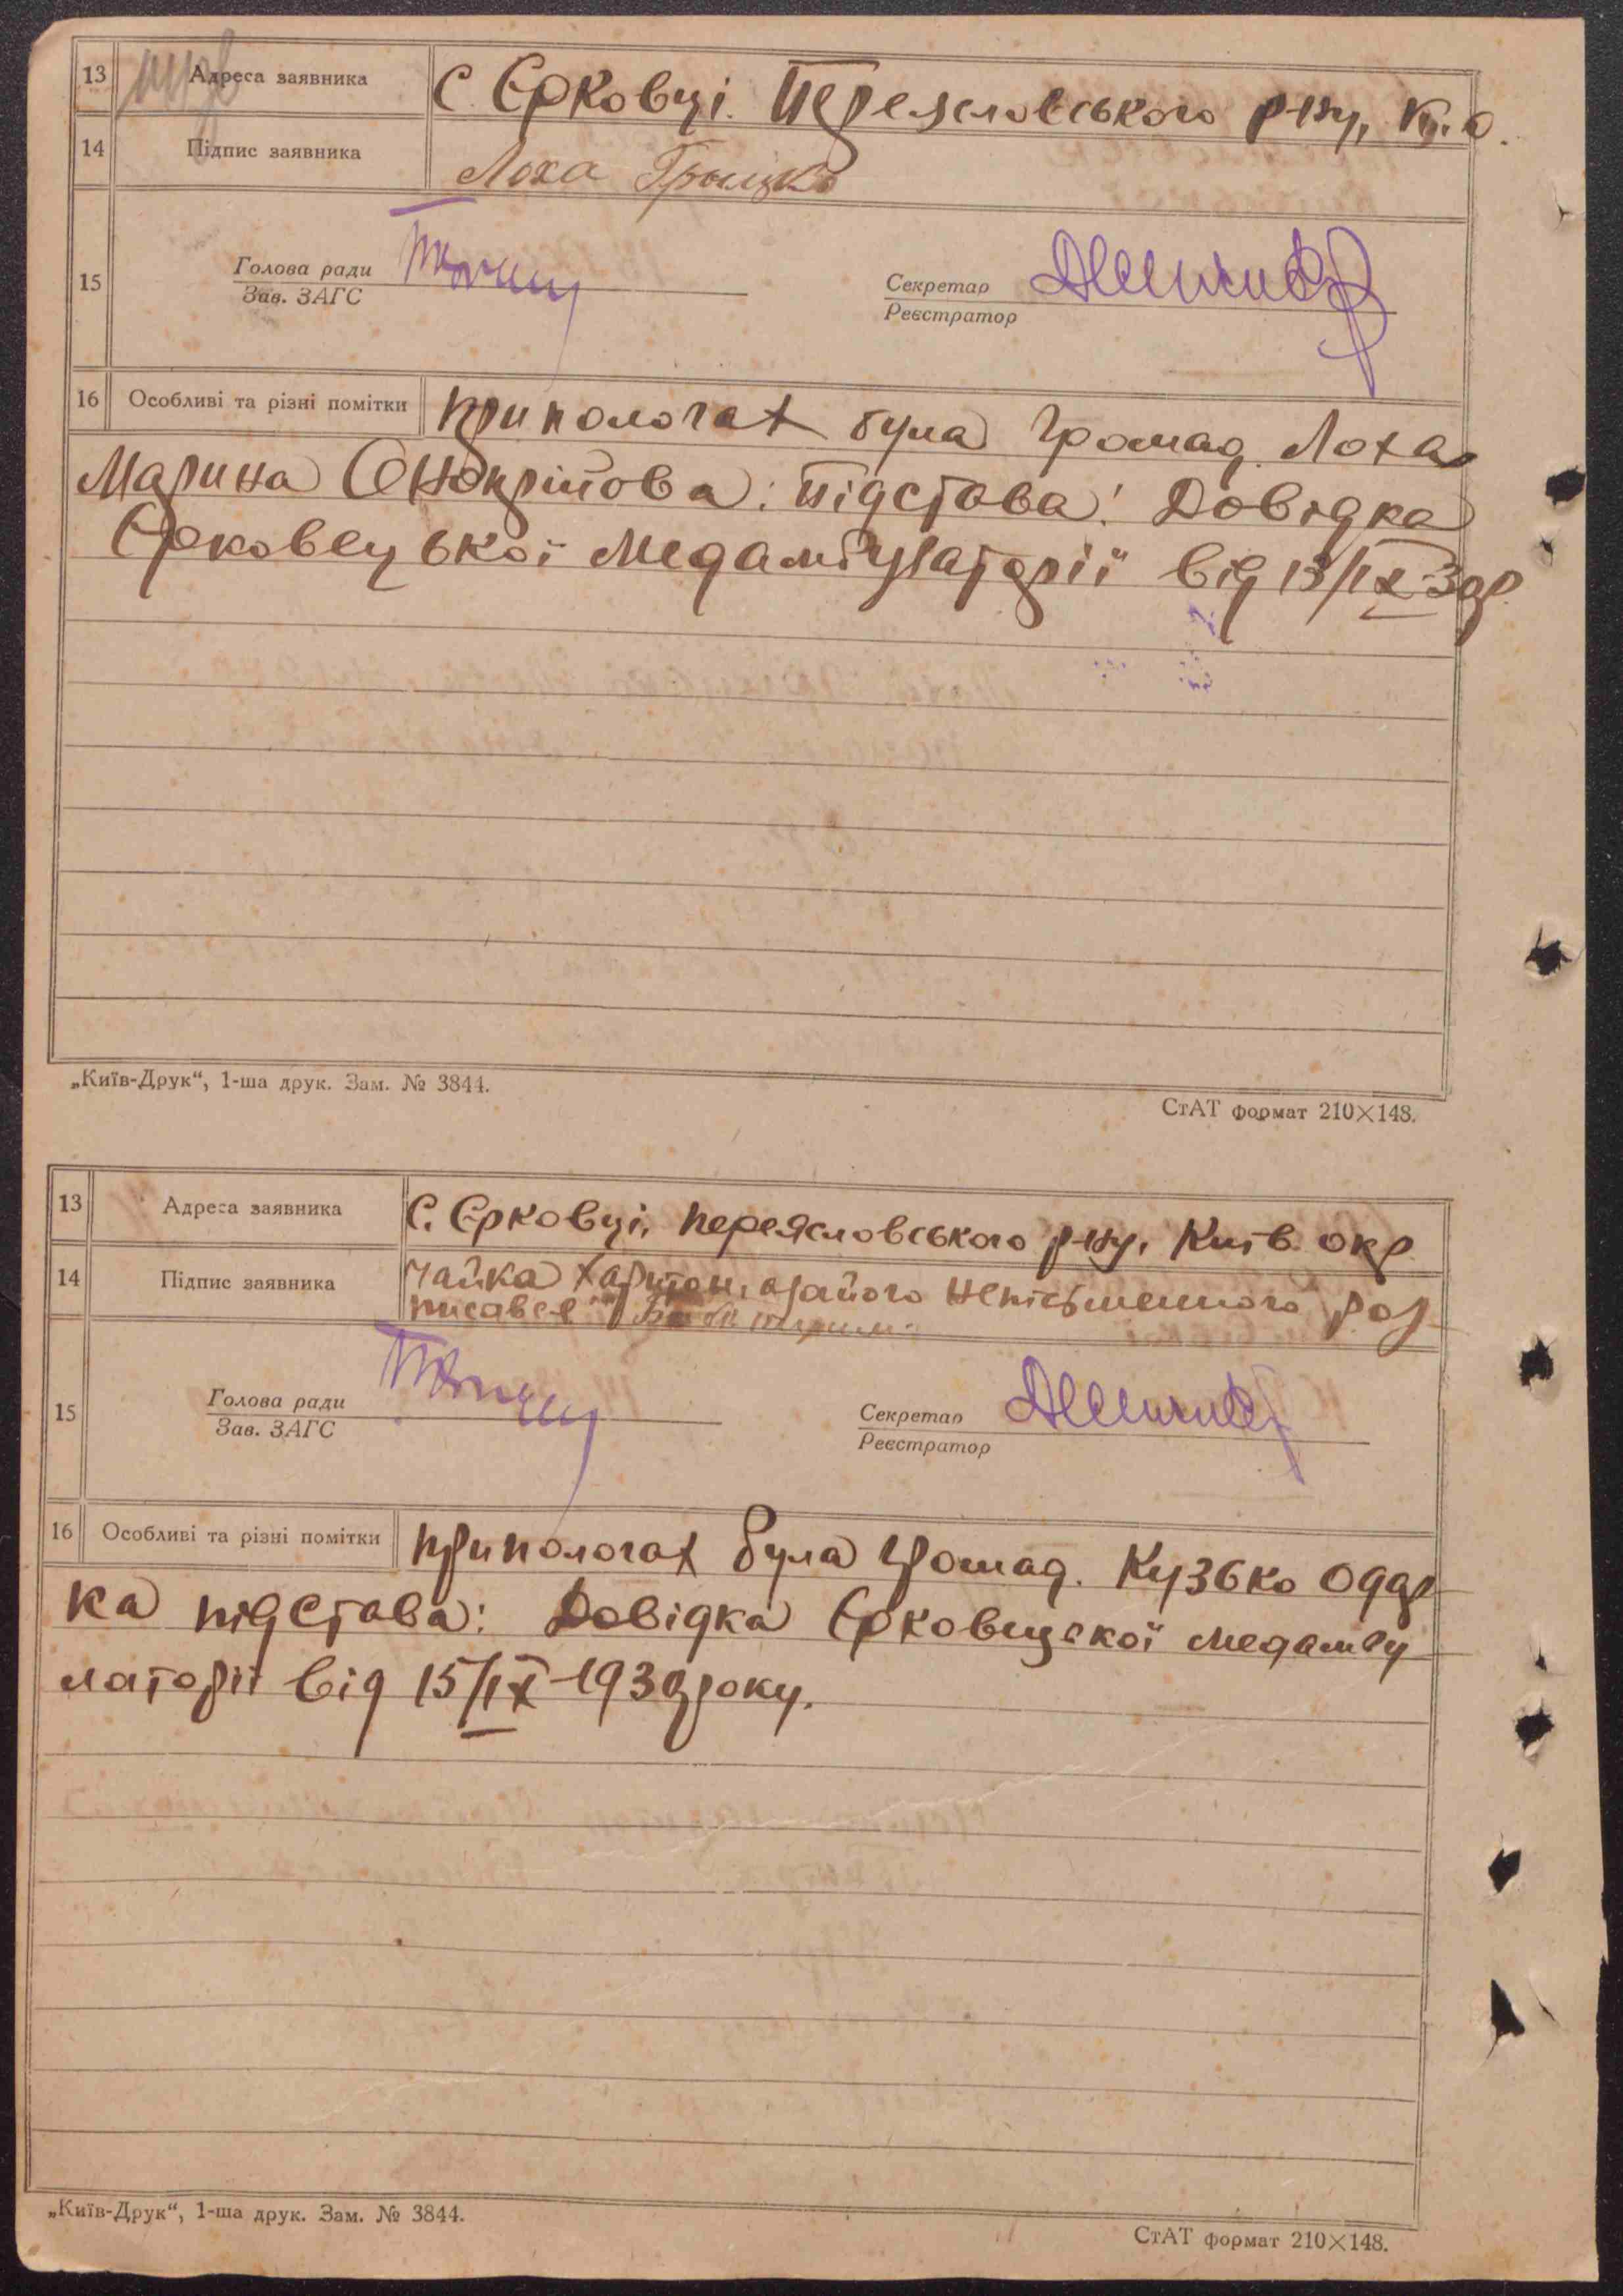 13 Адреса заявника С. Єрковці. Переяславського р-ну, К. о.
14 Підпис заявника Лоха Грыцко
15 Голова ради
Зав. ЗАГС
Секретар
Реєстратор
16 Особливі та різні помітки при пологах була громад. Лоха
Марина Онопрійова: підстава: Довідка
Єрковецької медамбулаторії від 13/IX-39р.
„Київ-Друк“, 1-ша друк. Зам. № 3844.
СтАТ формат 210×148.
13 Адреса заявника С. Єрковці, переясловського р-ну, Київ. окр.
14 Підпис заявника Чайка Харитон, а за його неписьменного роз
писався
15 Голова ради
Зав. ЗАГС
Секретар
Реєстратор
16 Особливі та різні помітки при пологах була громад. Кузько Одар
ка підстава: Довідка Єрковецької медамбу
латорії від 15/IX-1939 року.
„Київ-Друк“, 1-ша друк. Зам. № 3844.
СтАТ формат 210×148.